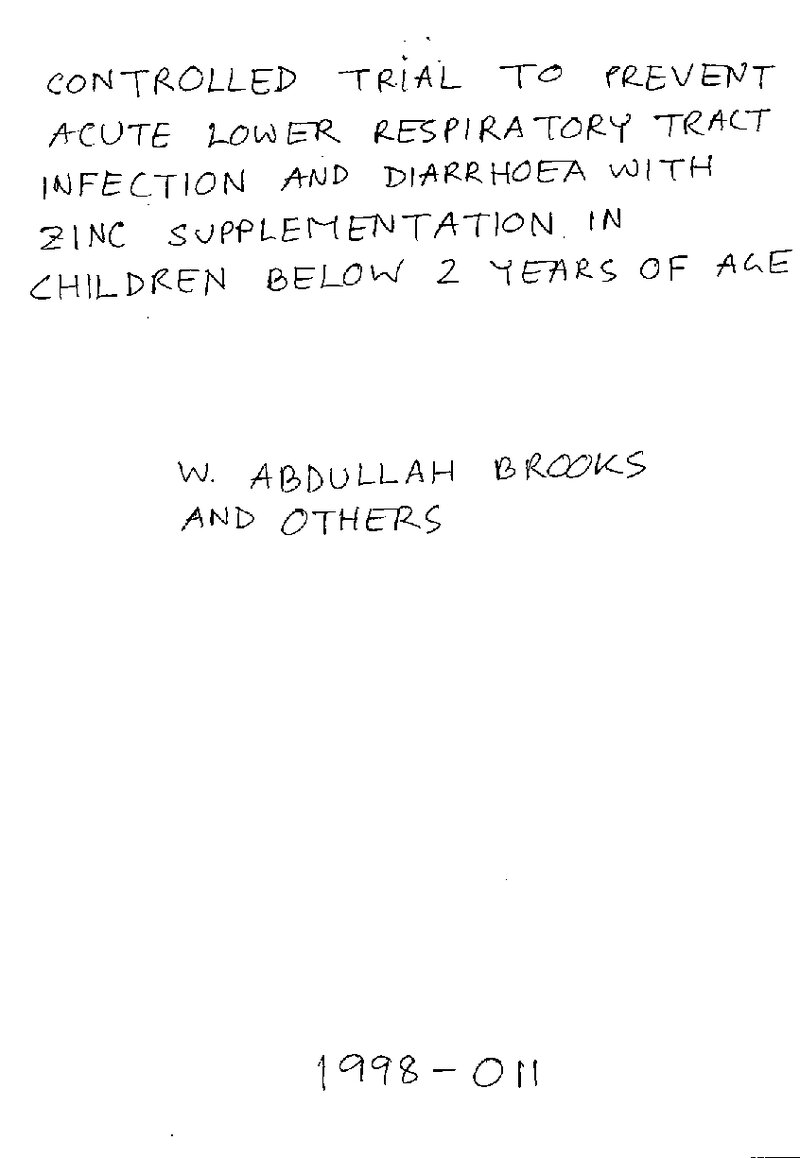 CONTROLLED TRIAL TO PREVENT
ACUTE LOWER RESPIRATORY TRACT
INFECTION AND DIARRHOEA WITH
ZINC SUPPLEMENTATION IN
CHILDREN BELOW 2 YEARS OF AGE
W. ABDULLAH BROOKS
AND OTHERS
1998-011